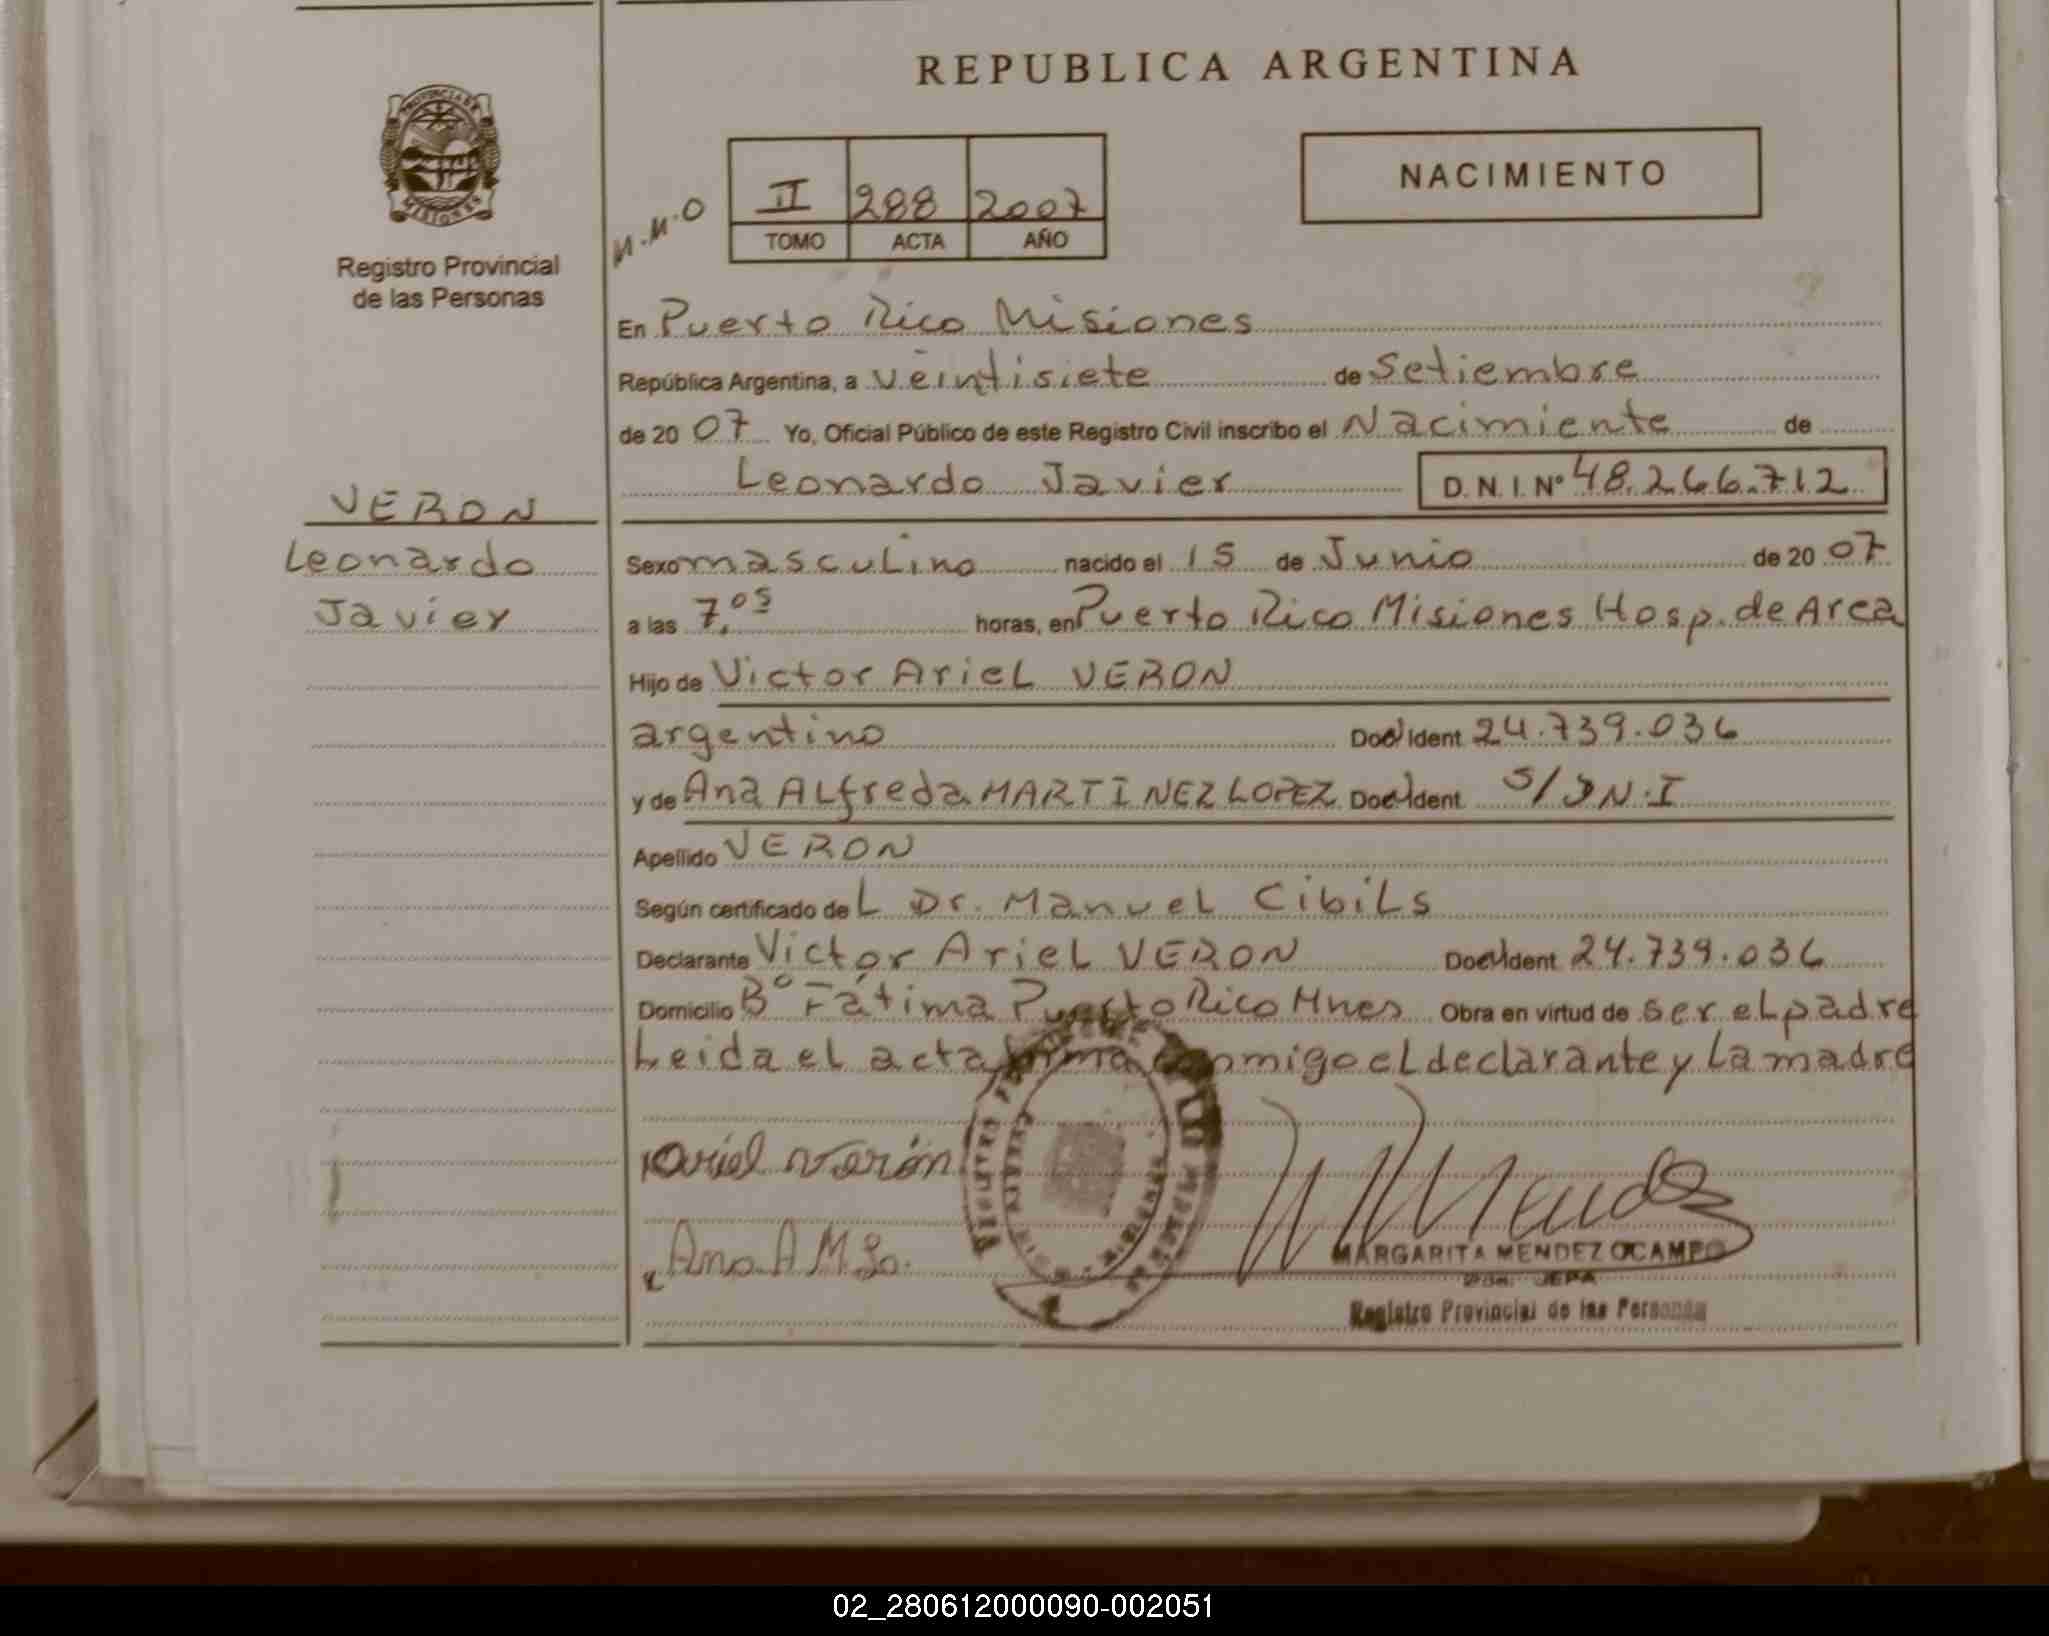 REPUBLICA ARGENTINA
PROVINCIA DE
MISIONES
Registro Provincial
de las Personas
M.M.O
II 288 2007
TOMO ACTA AÑO
NACIMIENTO
En Puerto Rico Misiones
República Argentina, a veintisiete de Setiembre
de 20 07 Yo, Oficial Público de este Registro Civil inscribo el Nacimiente de
Leonardo Javier D.N.I. Nº 48.266.712
VERON
Leonardo
Javier
Sexo masculino nacido el 15 de Junio de 20 07
a las 7,05 horas, en Puerto Rico Misiones Hosp. de Area
Hijo de Victor Ariel VERON
argentino Doc. Ident. 24.739.036
y de Ana Alfreda MARTINEZ LOPEZ Doc. Ident. S/DN.I
Apellido VERON
Según certificado de L Dr. Manuel Cibils
Declarante Victor Ariel VERON Doc. Ident. 24.739.036
Domicilio Bº Fátima Puerto Rico Mnes Obra en virtud de ser el padre
Leida el acta firma conmigo el declarante y La madre
Ariel Verón
Ana A M Lo.
MARGARITA MENDEZ OCAMPO
JEFA
Registro Provincial de las Personas
02_280612000090-002051